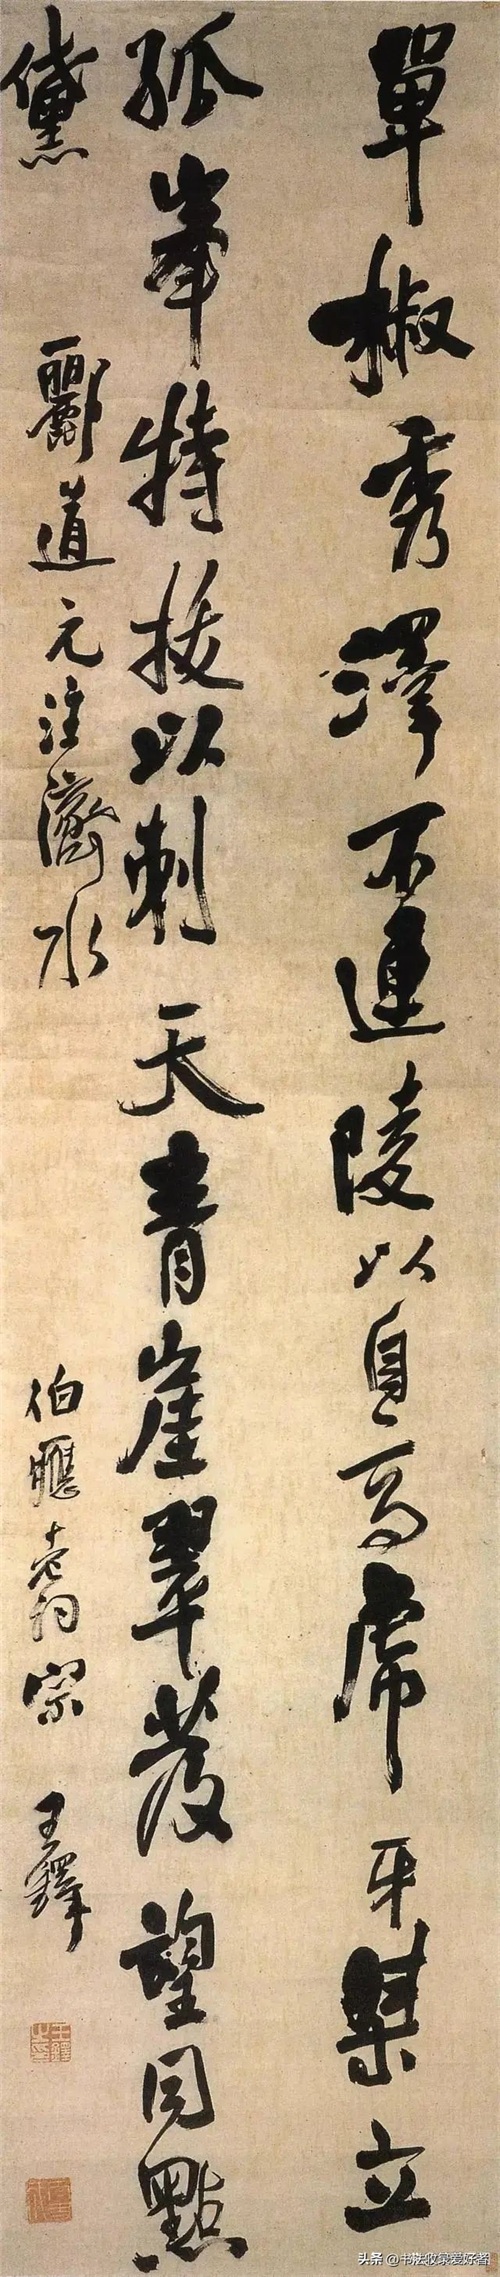 單椒秀澤不連陵以自高虎牙桀立
孤峯特拔以刺天青崖翠發望同點
黛 酈道元注濟水 伯應老詞宗 王鐸
王鐸之印
头条 @书法收录爱好者